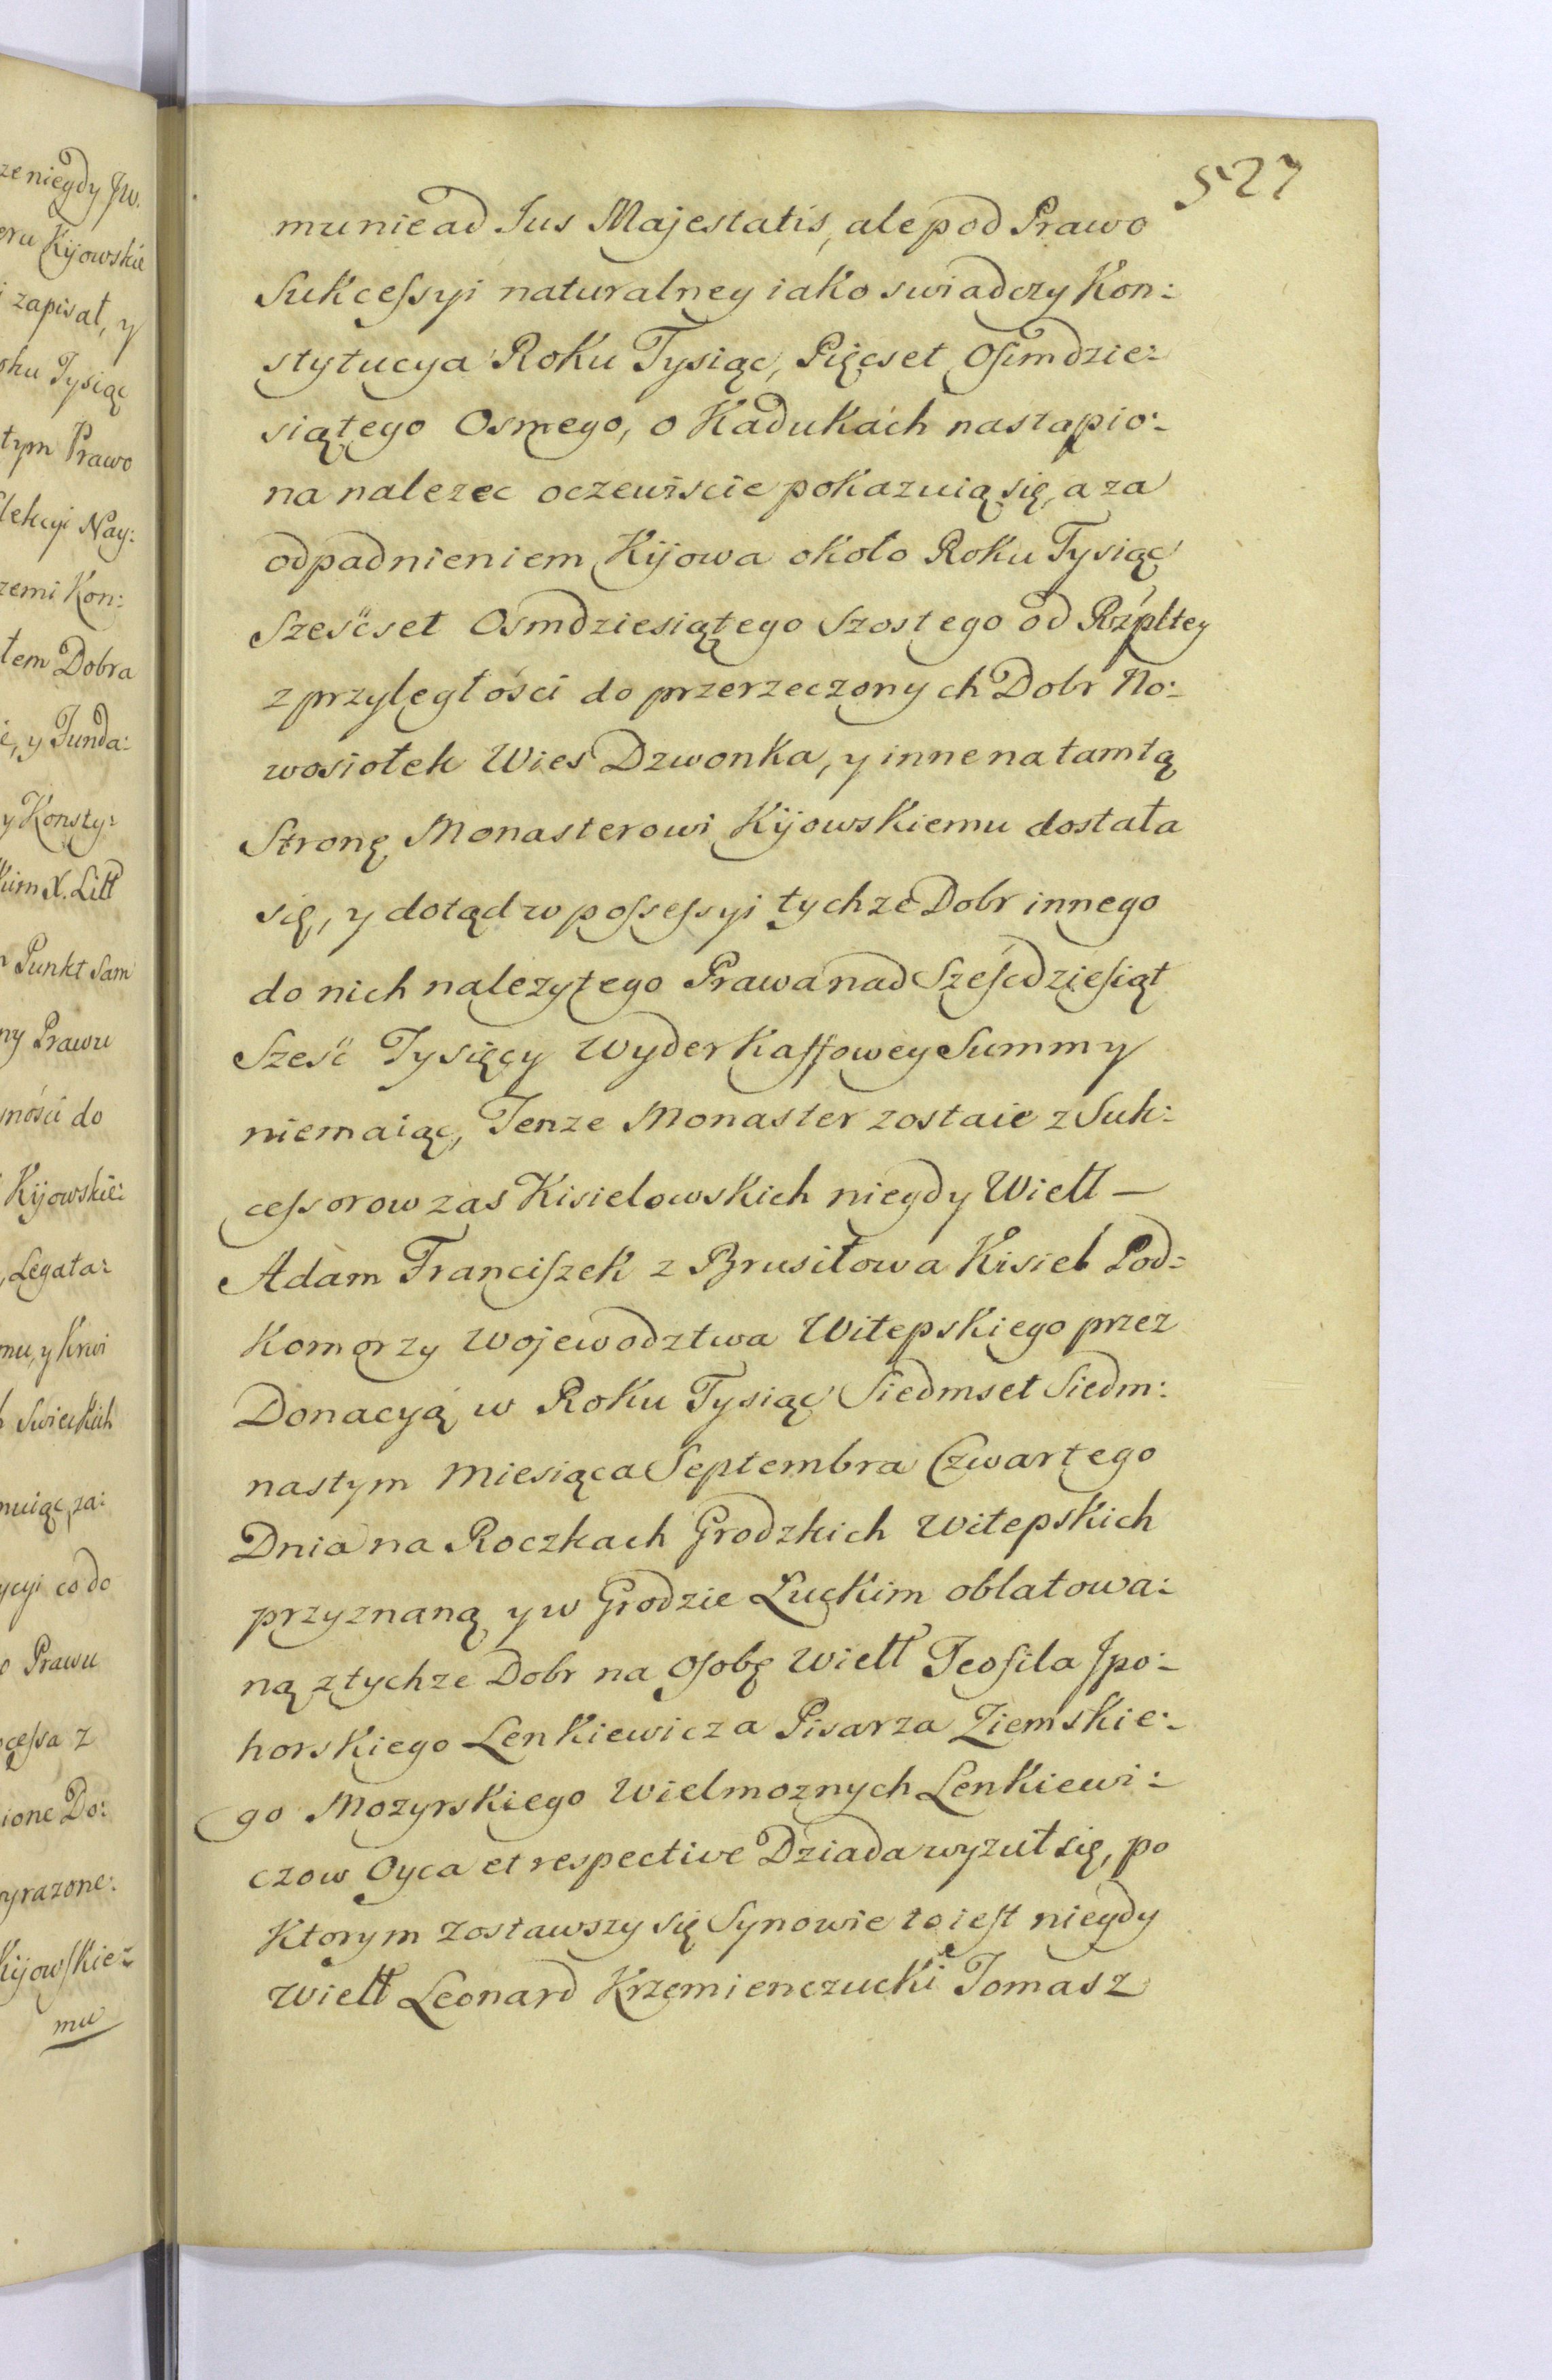 527
mu nie ad Jus Majestatis, ale pod Prawo
Sukcessyi naturalney iako swiadczy Kon:
stytucya Roku Tysiąc, Pięcset Osimdzie:
siątego Osmego, o Kadukach nastąpio:
na nalezec oczewiscie pokazuią się, a za
odpadnieniem Kijowa około Roku Tysiąc
Szesćset Osmdziesiątego Szostego od Rzpltey
z przyległości do przerzeczonych Dobr No:
wosiołek Wies Dzwonka, y inne na tamtą
Stronę Monasterowi Kijowskiemu dostała
się, y dotąd w possessyi tychze Dobr innego
do nich nalezytego Prawa nad Szescdziesiąt
Szesć Tysięcy Wyderkaffowey Summy
niemaiąc, Tenze Monaster zostaie z Suk:
cessorow zas Kisielowskich niegdy Wiell –
Adam Franciszek z Brusiłowa Kisiel Pod:
Komorzy Wojewodztwa Witepskiego przez
Donacyą w Roku Tysiąc Siedmset Siedm:
nastym Miesiąca Septembra Czwartego
Dnia na Roczkach Grodzkich Witepskich
przyznaną y w Grodzie Luckim oblatowa:
ną z tychze Dobr na Osobę Wiell Teofila Ipo:
horskiego Lenkiewicza Pisarza Ziemskie:
go Mozyrskiego Wielmoznych Lenkiewi:
czow Oyca et respective Dziada wyzuł się, po
Ktorym zostawszy się Synowie to iest niegdy
Wiell Leonard Krzemienczucki Tomasz